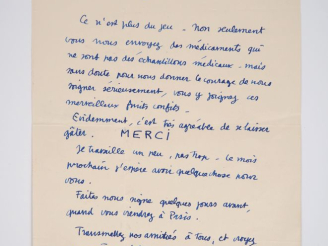 Ce n'est plus du jeu - Non seulement
vous nous envoyez des médicaments qui
ne sont pas des échantillons médicaux - mais
sans doute pour nous donner le courage de nous
soigner sérieusement, vous y joignez ces
merveilleux fruits confits -
Evidemment, c'est très agréable de se laisser
gâter. MERCI
Je travaille un peu, pas trop - Le mois
prochain j'espère avoir quelque chose pour
vous.
Faites nous signe quelques jours avant,
quand vous viendrez à Paris.
Transmettez nos amitiés à Tous, et croyez